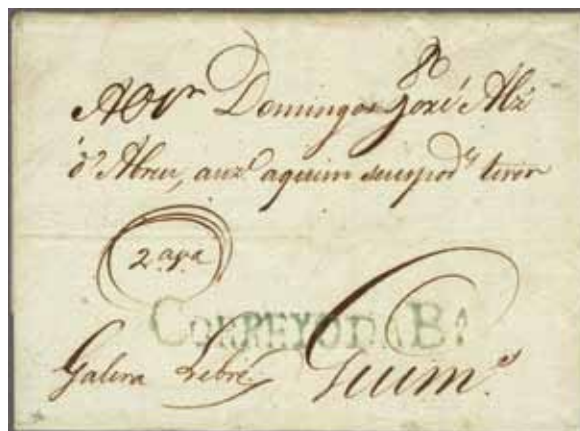 80
Ao Snr Domingos José Alz
d'Abreu, auz.e aquem seus pod.es tiver
2.a v.a
CORREYO DA B.A
Galera Lebre Guim.es